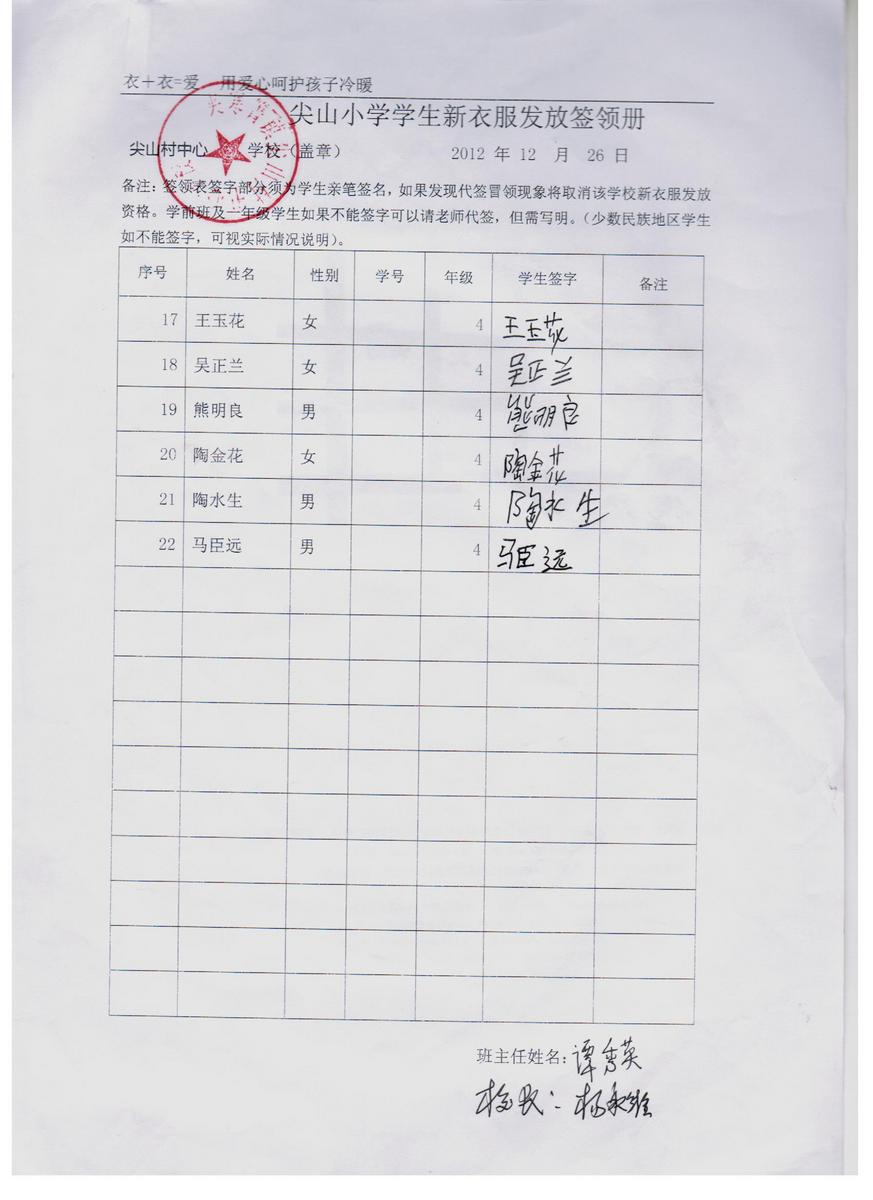 衣+衣=爱 用爱心呵护孩子冷暖
尖山小学学生新衣服发放签领册
尖山村中心 学校（盖章） 2012 年 12 月 26 日
备注：签领表签字部分须为学生亲笔签名，如果发现代签冒领现象将取消该学校新衣服发放
资格。学前班及一年级学生如果不能签字可以请老师代签，但需写明。（少数民族地区学生
如不能签字，可视实际情况说明）。
序号 姓名 性别 学号 年级 学生签字 备注
17 王玉花 女 4 王玉花
18 吴正兰 女 4 吴正兰
19 熊明良 男 4 熊明良
20 陶金花 女 4 陶金花
21 陶水生 男 4 陶水生
22 马臣远 男 4 马臣远
班主任姓名：谭秀英
校长：杨永